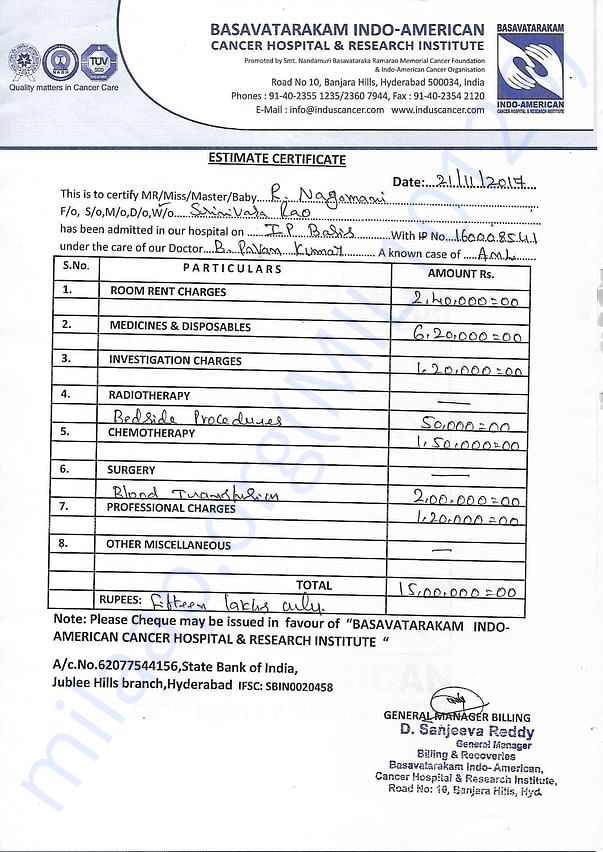 BASAVATARAKAM INDO-AMERICAN
CANCER HOSPITAL & RESEARCH INSTITUTE
Promoted by Smt. Nandamuri Basavataraka Ramarao Memorial Cancer Foundation
& Indo-American Cancer Organisation
Road No 10, Banjara Hills, Hyderabad 500034, India
Phones : 91-40-2355 1235/2360 7944, Fax : 91-40-2354 2120
E-Mail : info@induscancer.com www.induscancer.com
BASAVATARAKAM
INDO-AMERICAN
CANCER HOSPITAL & RESEARCH INSTITUTE
TUV
Quality matters in Cancer Care
ESTIMATE CERTIFICATE
Date: 21/11/2017
This is to certify MR/Miss/Master/Baby R. Nagamani
F/o, S/o,M/o,D/o,W/o Srinivasa Rao
has been admitted in our hospital on I.P Basis With IP No. 160008541
under the care of our Doctor B. Pavan Kumar A known case of AML
S.No. PARTICULARS AMOUNT Rs.
1. ROOM RENT CHARGES 2,40,000=00
2. MEDICINES & DISPOSABLES 6,20,000=00
3. INVESTIGATION CHARGES 1,20,000=00
4. RADIOTHERAPY —
Bedside Procedures 50,000=00
5. CHEMOTHERAPY 1,50,000=00
6. SURGERY —
Blood Transfusion 2,00,000=00
7. PROFESSIONAL CHARGES 1,20,000=00
8. OTHER MISCELLANEOUS —
TOTAL 15,00,000=00
RUPEES: Fifteen lakhs only.
Note: Please Cheque may be issued in favour of "BASAVATARAKAM INDO-
AMERICAN CANCER HOSPITAL & RESEARCH INSTITUTE "
A/c.No.62077544156,State Bank of India,
Jublee Hills branch,Hyderabad IFSC: SBIN0020458
GENERAL MANAGER BILLING
D. Sanjeeva Reddy
General Manager
Billing & Recoveries
Basavatarakam Indo-American,
Cancer Hospital & Research Institute,
Road No: 10, Banjara Hills, Hyd.